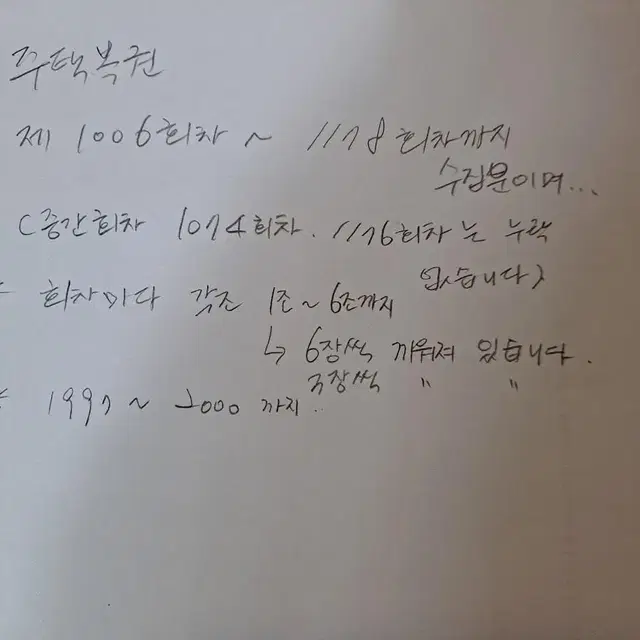 주택복권
제 1006회차 ~ 1178회차까지
수집문이며...
(중간회차 1074회차. 1176회차는 누락
없습니다)
* 회차마다 각조 1조~6조까지
↳ 6장씩 끼워져 있습니다.
3장씩 〃 〃
* 1997~2000까지.